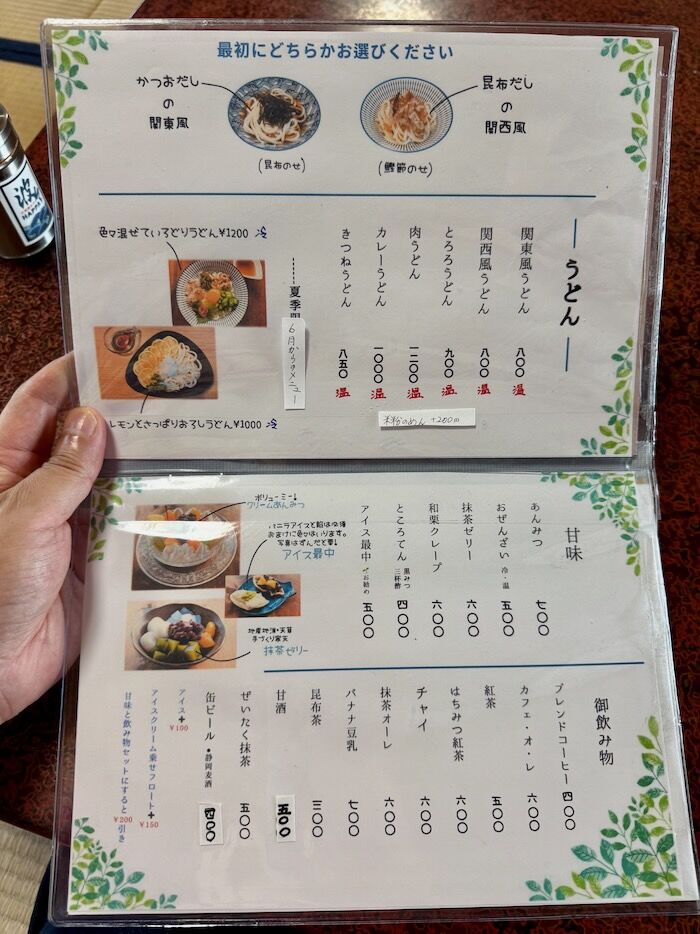 最初にどちらかお選びください
かつおだし
の
関東風
(昆布のせ)
昆布だし
の
関西風
(鰹節のせ)
うどん
関東風うどん 八〇〇 温
関西風うどん 八〇〇 温
とろろうどん 九〇〇 温
肉うどん 一二〇〇 温
カレーうどん 一〇〇〇 温
きつねうどん 八五〇 温
米粉のめん +200円
夏季限
6月からのメニュー
色々混ぜていろどりうどん¥1200 冷
レモンとさっぱりおろしうどん¥1000 冷
甘味
あんみつ 七〇〇
おぜんざい 冷・温 五〇〇
抹茶ゼリー 六〇〇
和栗クレープ 六〇〇
ところてん 黒みつ 三杯酢 四〇〇
アイス最中 お勧め 五〇〇
ボリューミー!
クリームあんみつ
バニラアイスと餡はゆず
おまけに色々はいります。
写真はずんだと栗!
アイス最中
手づくり寒天
抹茶ゼリー
御飲み物
ブレンドコーヒー 四〇〇
カフェ・オ・レ 六〇〇
紅茶 五〇〇
はちみつ紅茶 六〇〇
チャイ 六〇〇
抹茶オーレ 六〇〇
バナナ豆乳 七〇〇
昆布茶 三〇〇
甘酒 五〇〇
ぜいたく抹茶 五〇〇
缶ビール ●静岡麦酒 四〇〇
アイス+¥100
アイスクリーム乗せフロート+¥150
甘味と飲み物セットにすると¥200引き